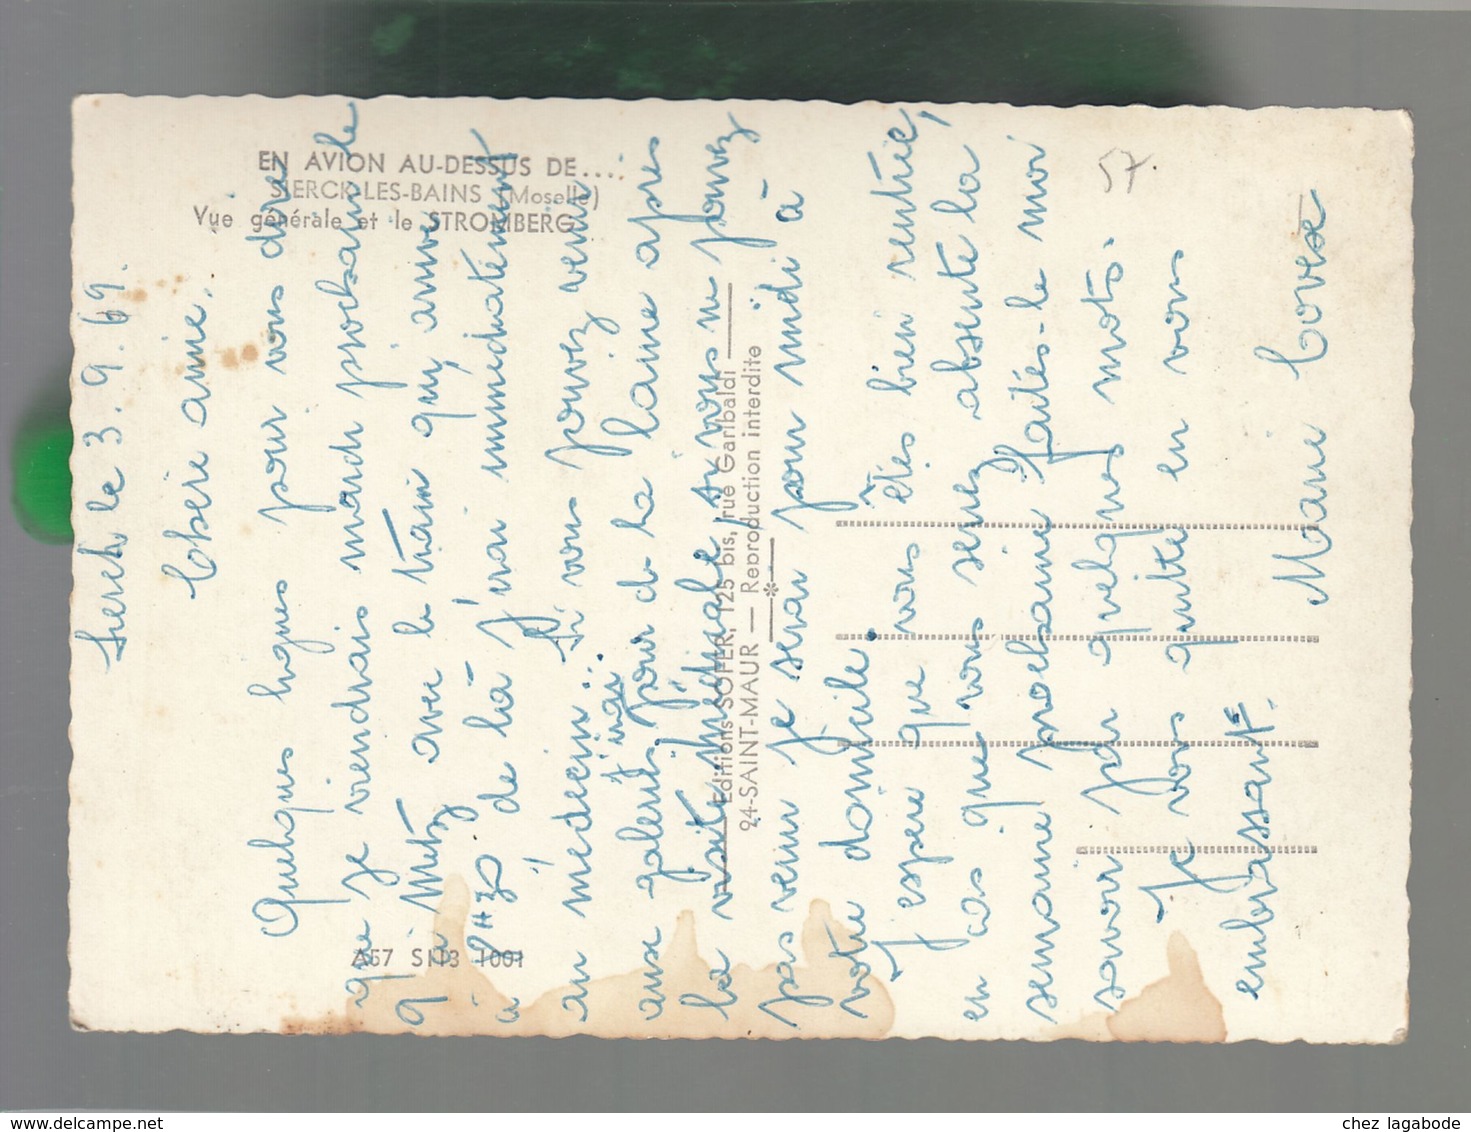 EN AVION AU-DESSUS DE....
SIERCK-LES-BAINS (Moselle)
Vue générale et le STROMBERG
57.
Sierck le 3.9.69.
Chère amie.
Quelques lignes pour vous dire
que je viendrais mardi prochain le
9 à Metz avec le train qui arrive
à 8H30 de là j'irai immédiatement
au médecin. Si vous pouvez venir
aux galeries j'irai pour de la laine après
la visite médicale, si vous ne pouvez
pas venir je serai pour midi à
votre domicile.
J'espère que vous êtes bien rentrée,
en cas que vous serez absente la
semaine prochaine faites-le moi
savoir par quelques mots.
Je vous quitte en vous
embrassant.
Marie
Editions SOFER, 125 bis, rue Garibaldi
94-SAINT-MAUR — Reproduction interdite
A57 SI13 1001
chez lagabode